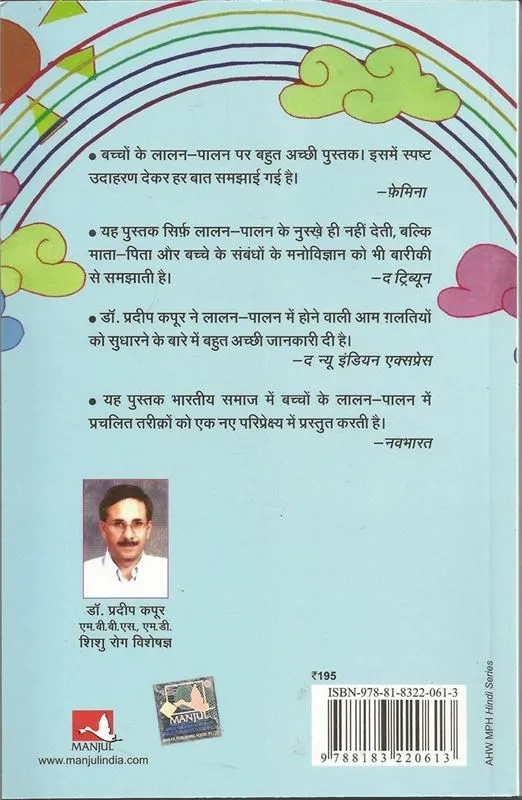 • बच्चों के लालन–पालन पर बहुत अच्छी पुस्तक। इसमें स्पष्ट
उदाहरण देकर हर बात समझाई गई है।
–फ़ेमिना
• यह पुस्तक सिर्फ़ लालन–पालन के नुस्ख़े ही नहीं देती, बल्कि
माता–पिता और बच्चे के संबंधों के मनोविज्ञान को भी बारीकी
से समझाती है। –द ट्रिब्यून
• डॉ. प्रदीप कपूर ने लालन–पालन में होने वाली आम ग़लतियों
को सुधारने के बारे में बहुत अच्छी जानकारी दी है।
–द न्यू इंडियन एक्सप्रेस
• यह पुस्तक भारतीय समाज में बच्चों के लालन–पालन में
प्रचलित तरीक़ों को एक नए परिप्रेक्ष्य में प्रस्तुत करती है।
–नवभारत
डॉ. प्रदीप कपूर
एम.बी.बी.एस., एम.डी.
शिशु रोग विशेषज्ञ
₹195
ISBN-978-81-8322-061-3
9 788183 220613
AHW MPH Hindi Series
MANJUL
www.manjulindia.com
MANJUL